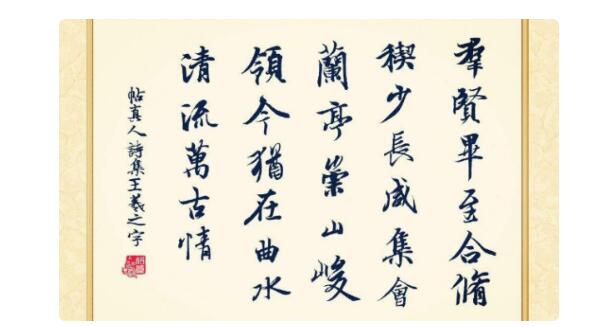 羣賢畢至合脩
稧少長咸集會
蘭亭崇山峻
領今猶在曲水
清流萬古情
帖真人詩集王羲之字